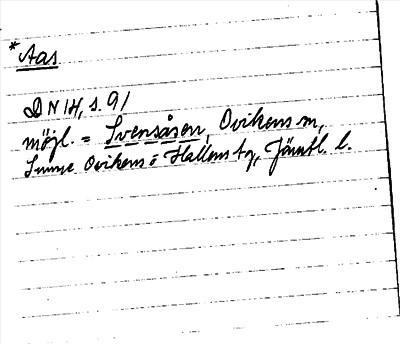 *Aas
DN 14, s. 91
möjl. = Svensåsen, Ovikens sn,
Sunne Ovikens o Hallens tg, Jämtl. l.